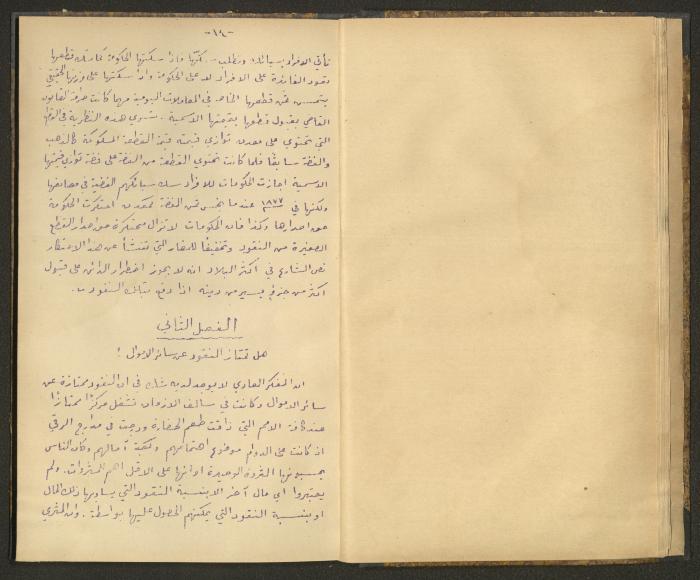 -١٤-
تأتي الافراد بسبائك وتطلب سكّها فاذا سكتها الحكومة كما تسك قطعها
تعود الفائدة على الافراد لا على الحكومة واذا سكتها على وزنها الحقيقي
يتحسن ثمن قطعها الخاص في المعاملات اليومية مهما كانت صرامة القانون
القاضي بقبول قطعها بقيمتها الاسمية . تسري هذه النظرية في
التي تحتوي على معدن توازي قيمته قيمة القطعة المسكوكة كالذهب
والفضة سابقًا فلما كانت تحتوي القطعة من الفضة على فضة توازي قيمتها
الاسمية اجازت الحكومات للافراد سك سبائكهم الفضية في مصانعها
ولكنها في ١٨٧٧ عندما بخس ثمن الفضة كمعدن احتكرت الحكومة
حق اصدارها وكذا فان الحكومات لا تزال محتكرة حق اصدار القطع
الصغيرة من النقود وتخفيفًا للمضار التي تنشأ عن هذا الاحتكار
نص الشارع في اكثر البلاد انه لا يجوز اضطرار الدائن على قبول
اكثر من جزء يسير من دينه اذا دفع بتلك النقود .
الفصل الثاني
هل تمتاز النقود عن سائر الاموال ؟
ان المفكر العادي لا يوجد لديه شك في ان النقود ممتازة عن
سائر الاموال وكانت في سالف الازمان تشغل مركزًا ممتازًا
عند كافة الامم التي ذاقت طعم الحضارة ودرجت في مدارج الرقي
اذ كانت على الدوام موضوع اهتمامهم وكعبة آمالهم وكان الناس
يحسبونها الثروة الوحيدة او انها على الاقل اهم الثروات . ولم
يعتبروا اي مال آخر الا بنسبة النقود التي يساويها ذلك المال
او بنسبة النقود التي يمكنهم الحصول عليها بواسطة . وان المثري